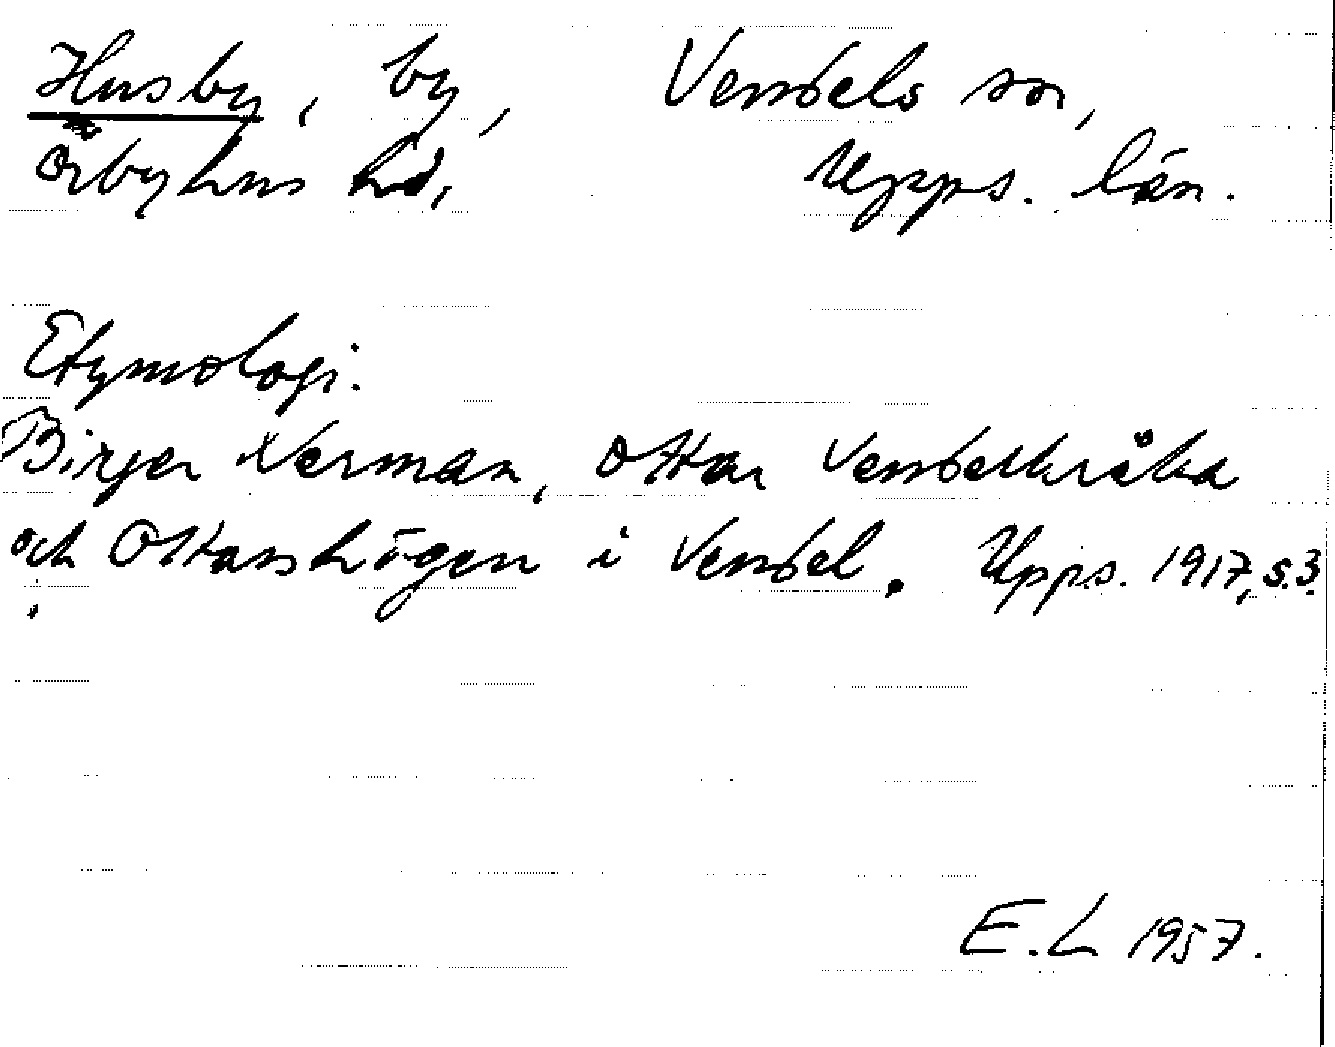 Husby, by, Vendels sn,
Örbyhus hd, Upps. län.
Etymologi.
Birger Nerman, Ottar Vendelkråka
och Ottarshögen i Vendel. Upps. 1917, s.3.
E.L 1957.